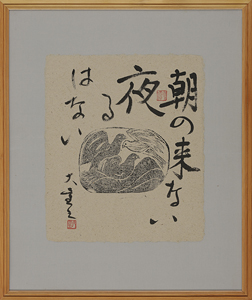 朝の来ない
夜る
はない